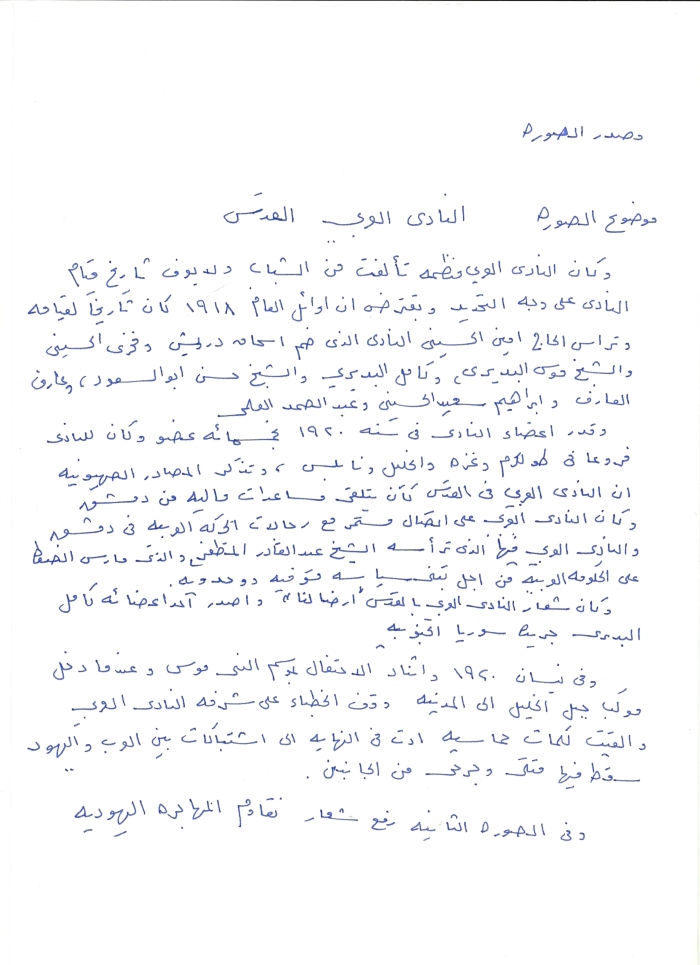 مصدر الصوره
موضوع الصوره النادى العربي القدس
وكان النادى العربي منظمه تألفت من الشباب ولا يعرف تاريخ قيام
النادى على وجه التحديد ويفترض ان اوائل العام ١٩١٨ كان تاريخاً لقيامه
وتراس الحاج امين الحسيني النادى الذى ضم اسحاق درويش وفخرى الحسيني
والشيخ موسى البديرى، وكامل البديري والشيخ حسن ابو السعود، وعارف
العارف وابراهيم سعيد الحسيني وعبد الصمد العلمي
وقدر اعضاء النادى فى سنه ١٩٢٠ بخمسمائه عضو وكان للنادى
فروعا فى طولكرم وغزه والخليل ونابلس، وتذكر المصادر الصهيونيه
ان النادى العربي فى القدس كان يتلقى مساعدات ماليه من دمشق
وكان النادى العربي على اتصال مستمر مع رجالات الحركه العربيه فى دمشق
والنادى العربي فيها الذى ترأسه الشيخ عبد القادر المظفر والذى مارس الضغط
على الحكومه العربيه من اجل تنفيذ سياسه
وكان شعار النادى العربي بالقدس "ارضنا لنا" واصدر احد اعضائه كامل
البديرى جريدة سوريا الجنوبيه
وفى نيسان ١٩٢٠ واثناء الاحتفال بموسم النبى موسى وعندما دخل
موكب جبل الخليل الى المدينه وقف الخطباء على شرفه النادى العربي
والقيت كلمات حماسيه ادت فى النهايه الى اشتباكات بين العرب واليهود
سقط فيها قتلى وجرحى من الجانبين.
وفى الصوره الثانيه رفع شعار نقاوم المهاجره اليهوديه